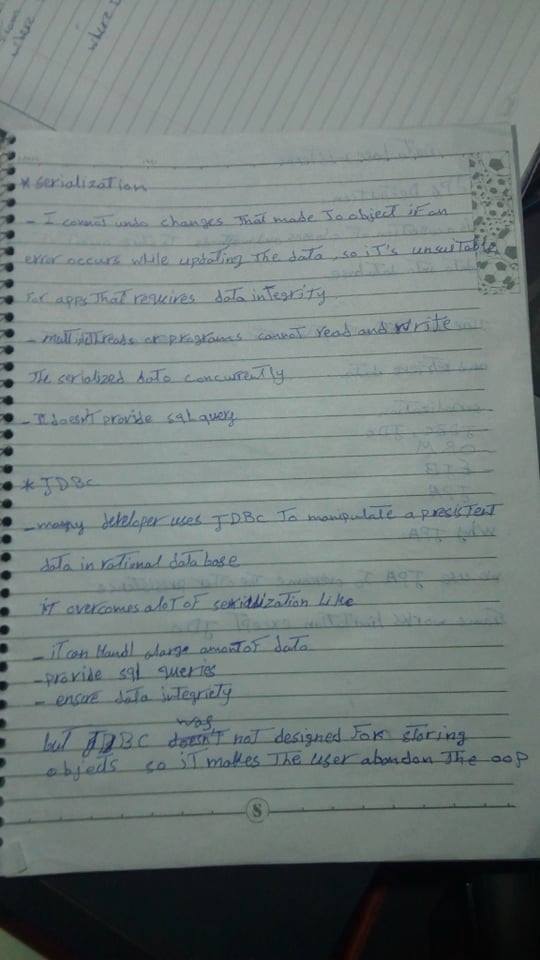 where
where
* Serialization
- I cannot undo changes that made to object if an
error occurs while updating the data, so it's unsuitable
for apps that requires data integrity
- multithreads or programs cannot read and write
the serialized data concurrently
- It doesn't provide sql query
* JDBC
- many developer uses JDBC to manipulate a presistent
data in rational data base
it overcomes a lot of serialization like
- it can Handl a large amont of data
- provide sql queries
- ensure data integriety
but JDBC was not designed for storing
objects so it makes the user abandon the oop
8